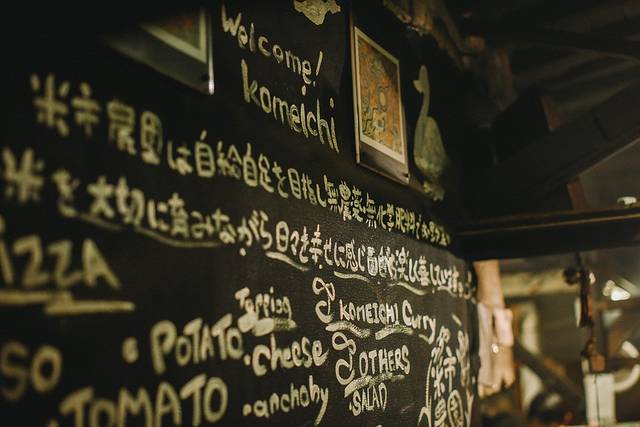 Welcome!
Komeichi
米市農園は自給自足を目指し無農薬・無化学肥料で
米を大切に育みながら日々を幸せに感じ
PIZZA
POTATO
TOMATO
Topping
cheese
anchoby
KOMEICHI Curry
OTHERS
SALAD
米市農園